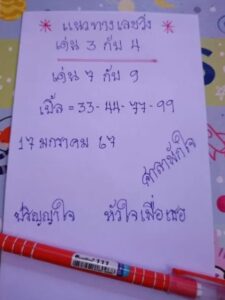 * แนวทางเลขวิ่ง *
เด่น 3 กับ 4
เด่น 7 กับ 9
เบิ้ล = 33-44-77-99
17 มกราคม 67
ศาลาพักใจ
ปริญญาใจ หัวใจเพื่อเธอ